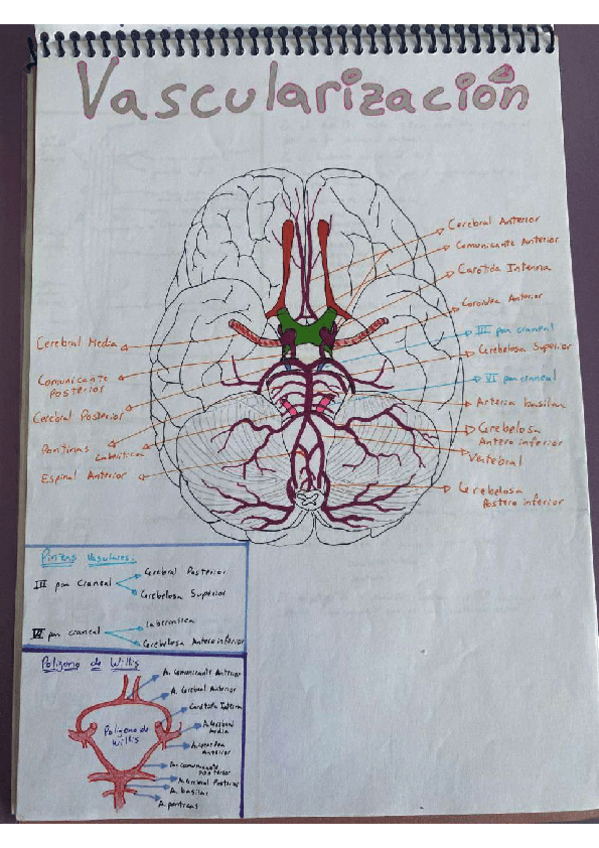 Vascularización
Cerebral Anterior
Comunicante Anterior
Carótida Interna
Coroidea Anterior
III par craneal
Cerebelosa Superior
VI par craneal
Arteria basilar
Cerebelosa
Antero inferior
Vertebral
Cerebelosa
Postero inferior
Cerebral Media
Comunicante
Posterior
Cerebral Posterior
Pontinas
Laberíntica
Espinal Anterior
Pinzas Vasculares:
III par Craneal
Cerebral Posterior
Cerebelosa Superior
par craneal
Laberíntica
Cerebelosa Antero inferior
Polígono de Willis
Polígono de
Willis
A. Comunicante Anterior
A. Cerebral Anterior
Carótida Interna
A. Cerebral
Media
Anterior
A. comunicante
Posterior
A. Cerebral Posterior
A. basilar
A. pontinas